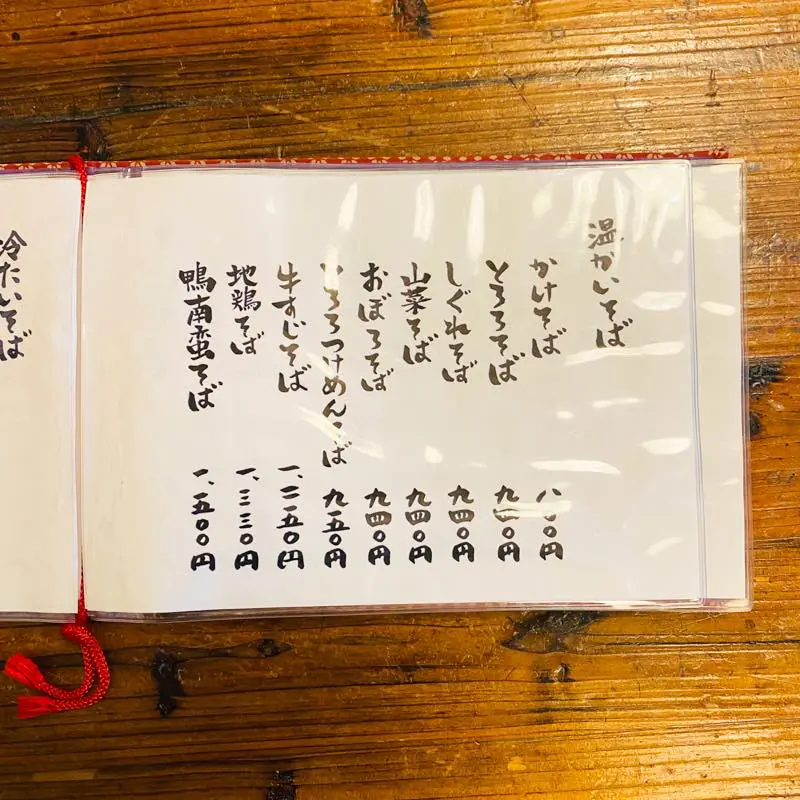 温かいそば
かけそば 八〇〇円
とろろそば 九四〇円
しぐれそば 九四〇円
山菜そば 九四〇円
おぼろそば 九四〇円
とろろつけめんそば 九五〇円
牛すじそば 一、二五〇円
地鶏そば 一、三三〇円
鴨南蛮そば 一、五〇〇円
冷たいそば